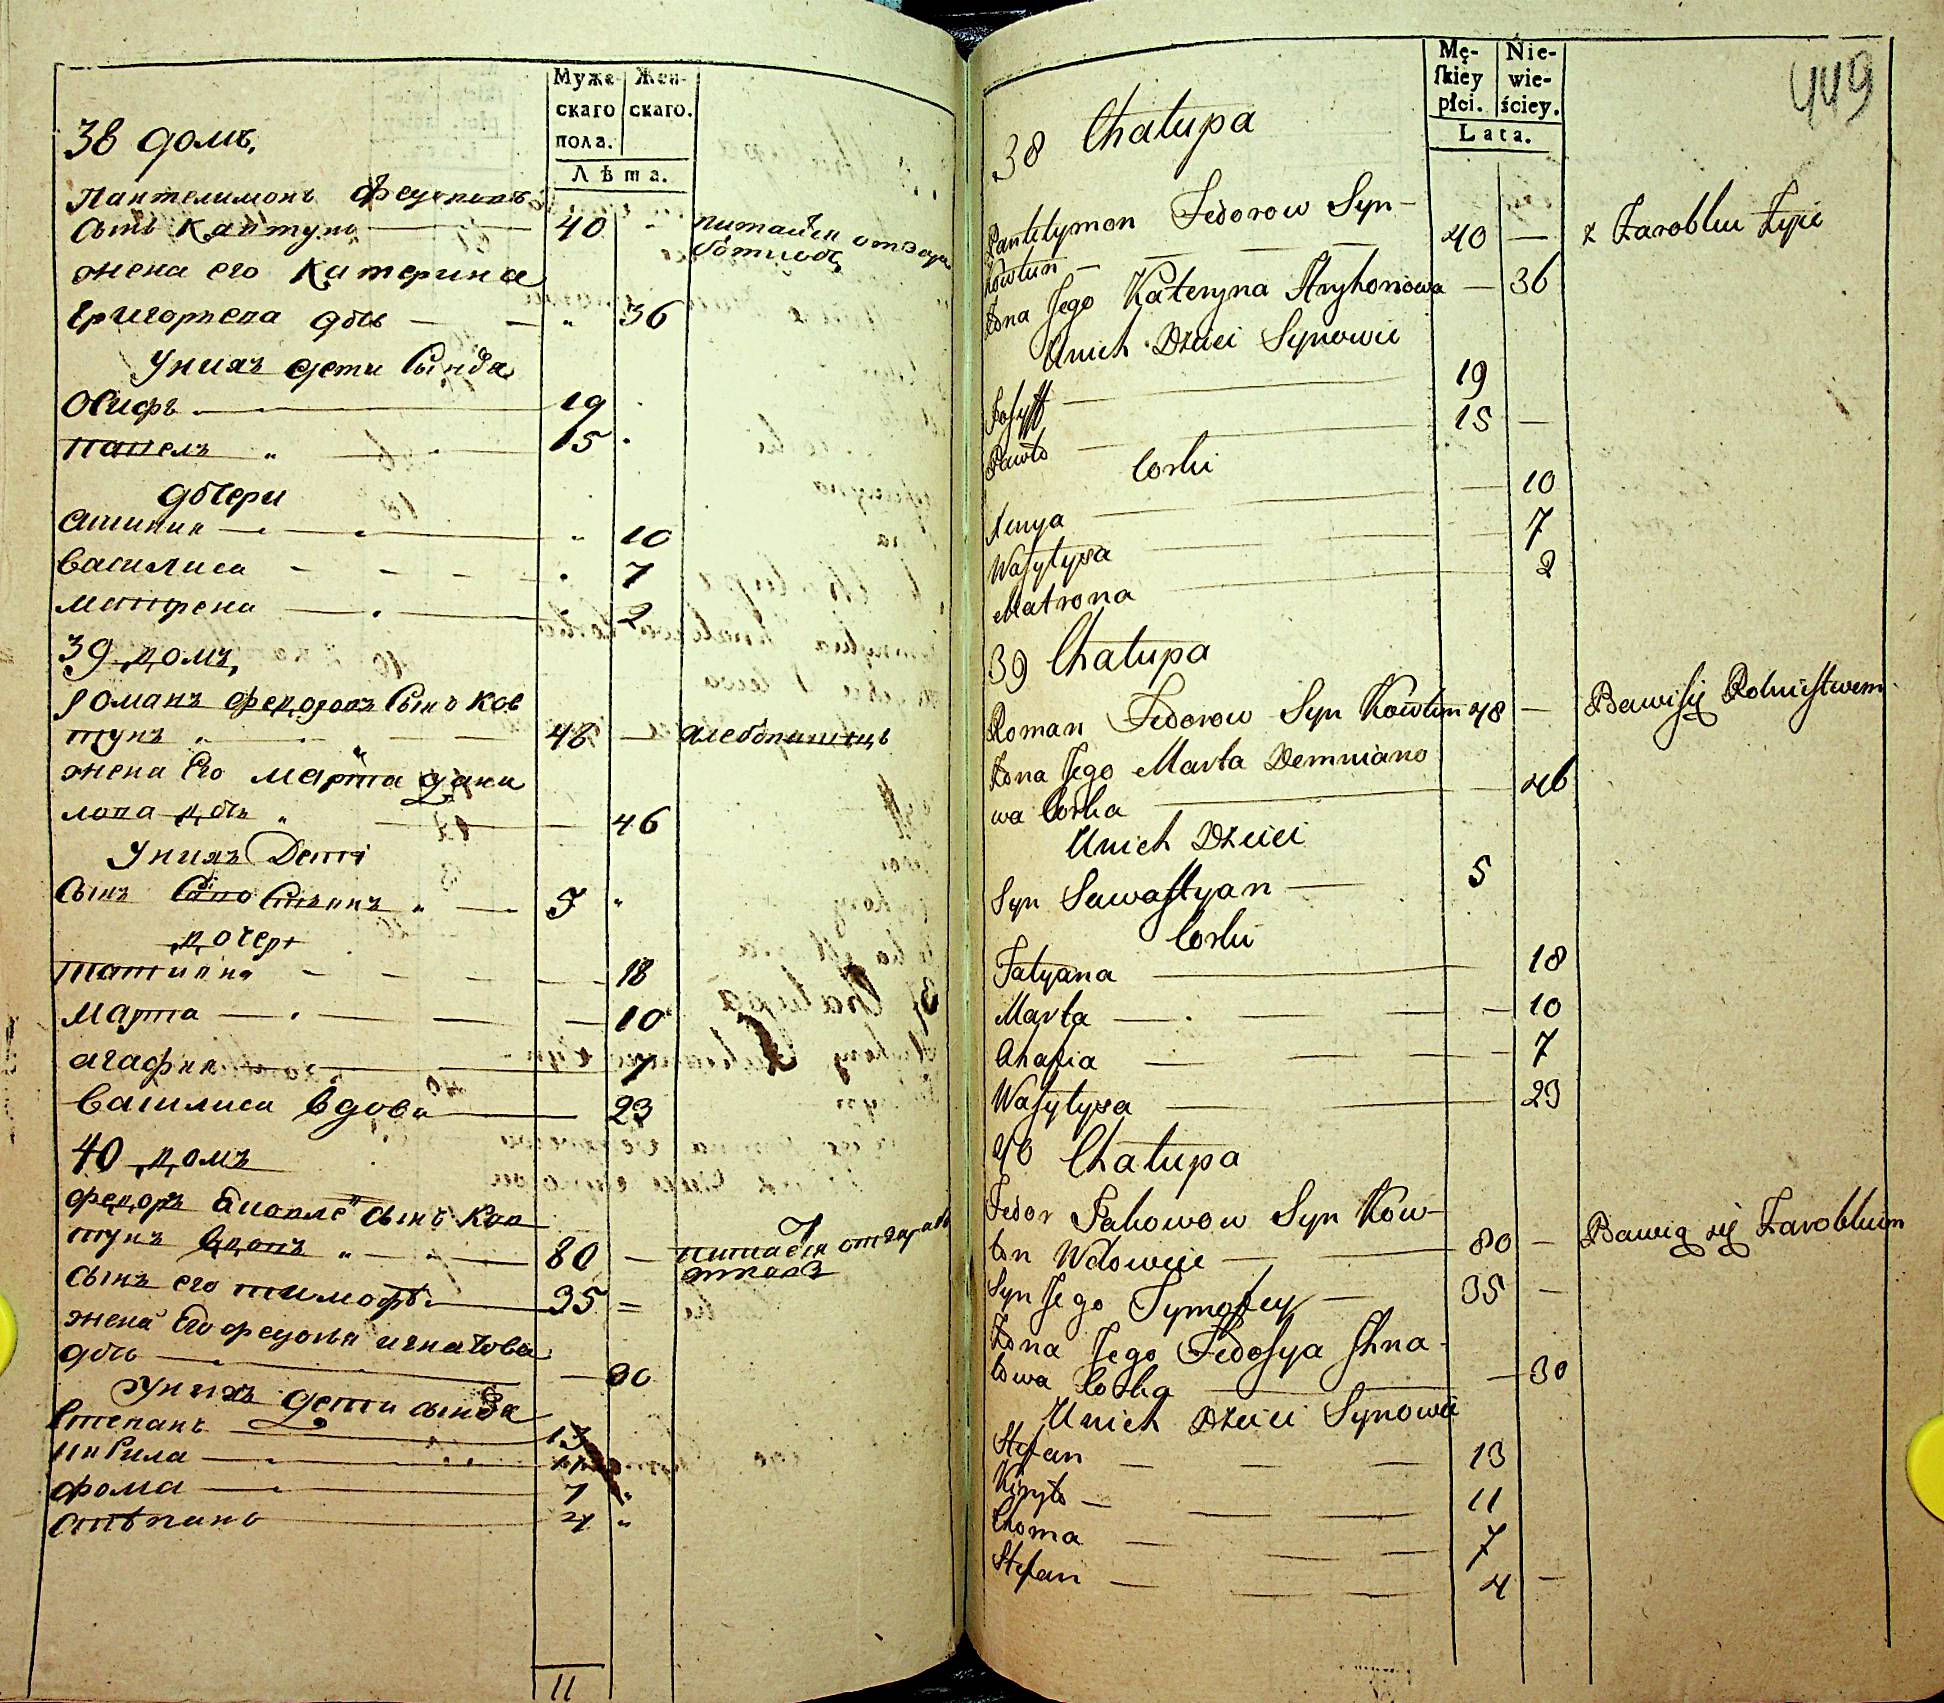 Муже-
скаго
пола.
Жен-
скаго.
Лѣта.
38 домъ,
Пантелимонъ Федоровъ
Сынъ Кавтунъ 40 питается отзара
ботковъ
жена его Катерина
Григорьева дочь 36
У нихъ дети Сыновя
Осифъ 19
Павелъ 15
дочери
10
Василиса 7
Матрена 2
39 домъ,
Романъ Федоровъ Сынъ Ков
тунъ 48 хлебопашецъ
жена Его Марта дани
лова дочь 46
У нихъ Дети
Сынъ 5
дочери
Татиана 18
Марта 10
агафия 7
Василиса вдова 23
40 домъ
Федоръ сынъ Ков
тунъ вдовъ 80 питается отзарабо
Сынъ его тимофѣй 35
жена Его федосья игнатова
дочь 30
У нихъ дети сыновя
Степанъ 13
Кирила 11
фома 7
Степанъ 4
11
Mę-
ſkiey
płci.
Nie-
wie-
ściey.
Lata.
449
38 Chałupa
Pantelymon Fedorow Syn
Kowtun 40 z Zarobku Żyie
Żona Jego Kateryna Hryhorowa 36
U nich Dzieci Synowie
Josyff 19
Pawło 15
Corki
Xenya 10
Wasylysa 7
Matrona 2
39 Chałupa
Roman Fedorow Syn Kowtun 48 Bawi się Rolnistwem
Żona Jego Marta Demniano
wa Corka 46
U nich Dzieci
Syn Sawastyan 5
Corki
Tatyana 18
Marta 10
Ahafia 7
Wasylysa 23
40 Chałupa
Fedor Jakowow Syn Kow-
tun Wdowiec 80 Bawią się Zarobkiem
Syn Jego Tymofey 35
Żona Jego Fedosya Ihna-
towa Corka 30
U nich Dzieci Synowie
Stefan 13
Kiryło 11
Choma 7
Stefan 4